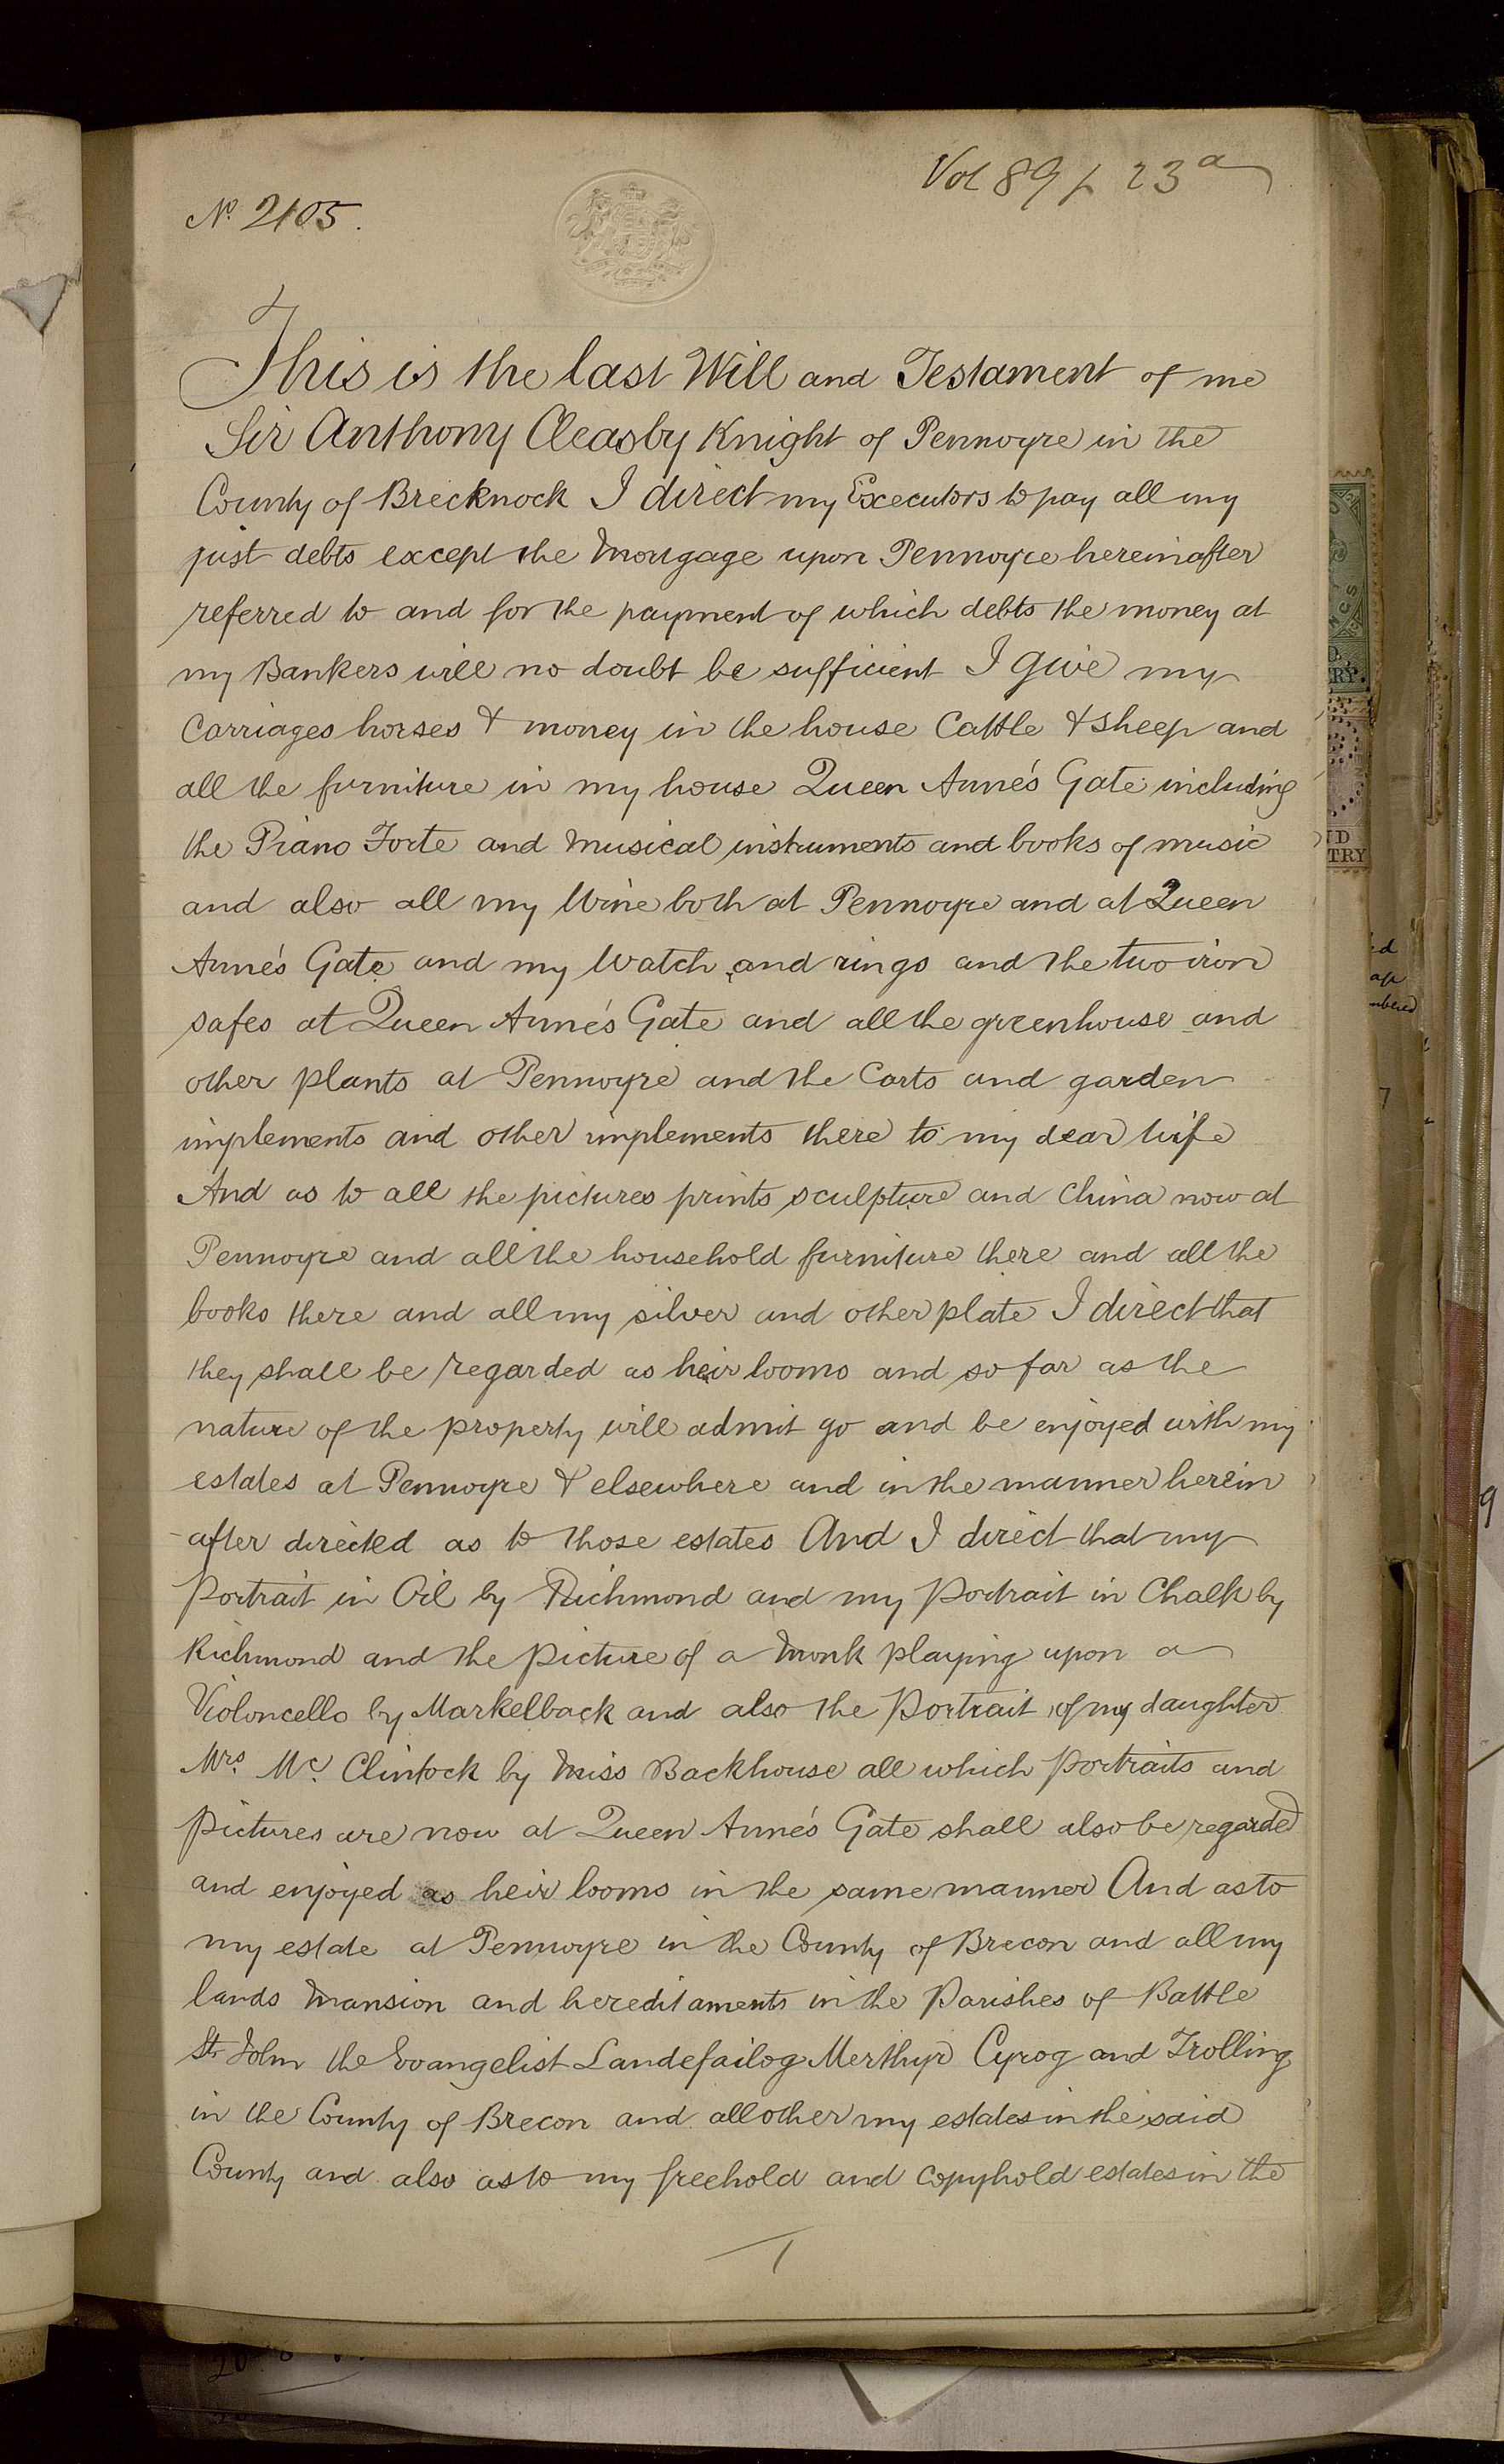 Vol 89 p 23a
No. 2105.
This is the last Will and Testament of me
Sir Anthony Cleasby Knight of Pennoyre in the
County of Brecknock I direct my Executors to pay all my
just debts except the Mortgage upon Pennoyre hereinafter
referred to and for the payment of which debts the money at
my Bankers will no doubt be sufficient I give my
Carriages horses & money in the house Cattle & sheep and
all the furniture in my house Queen Anne's Gate including
the Piano Forte and Musical instruments and books of music
and also all my Wine both at Pennoyre and at Queen
Anne's Gate and my Watch and rings and the two iron
safes at Queen Anne's Gate and all the greenhouse and
other plants at Pennoyre and the Carts and garden
implements and other implements there to my dear Wife
And as to all the pictures prints sculpture and China now at
Pennoyre and all the household furniture there and all the
books there and all my silver and other plate I direct that
they shall be regarded as heir looms and so far as the
nature of the property will admit go and be enjoyed with my
estates at Pennoyre & elsewhere and in the manner herein
after directed as to those estates And I direct that my
Portrait in Oil by Richmond and my Portrait in Chalk by
Richmond and the Picture of a Monk playing upon a
Violoncello by Markelback and also the Portrait of my daughter
Mrs. Mc. Clintock by Miss Backhouse all which Portraits and
Pictures are now at Queen Anne's Gate shall also be regarded
and enjoyed as heir looms in the same manner And as to
my estate at Pennoyre in the County of Brecon and all my
lands Mansion and hereditaments in the Parishes of Battle
St John the Evangelist Landefailog Merthyr Cyrog and Trolling
in the County of Brecon and all other my estates in the said
County and also as to my freehold and Copyhold estates in the
1